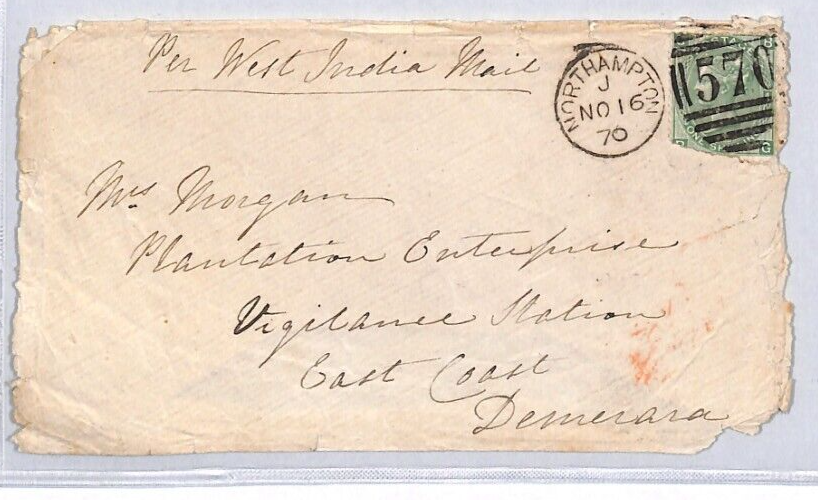 Per West India Mail
NORTHAMPTON
J
NO 16
70
570
Mrs Morgan
Plantation Enterprise
Vigilance Station
East Coast
Demerara